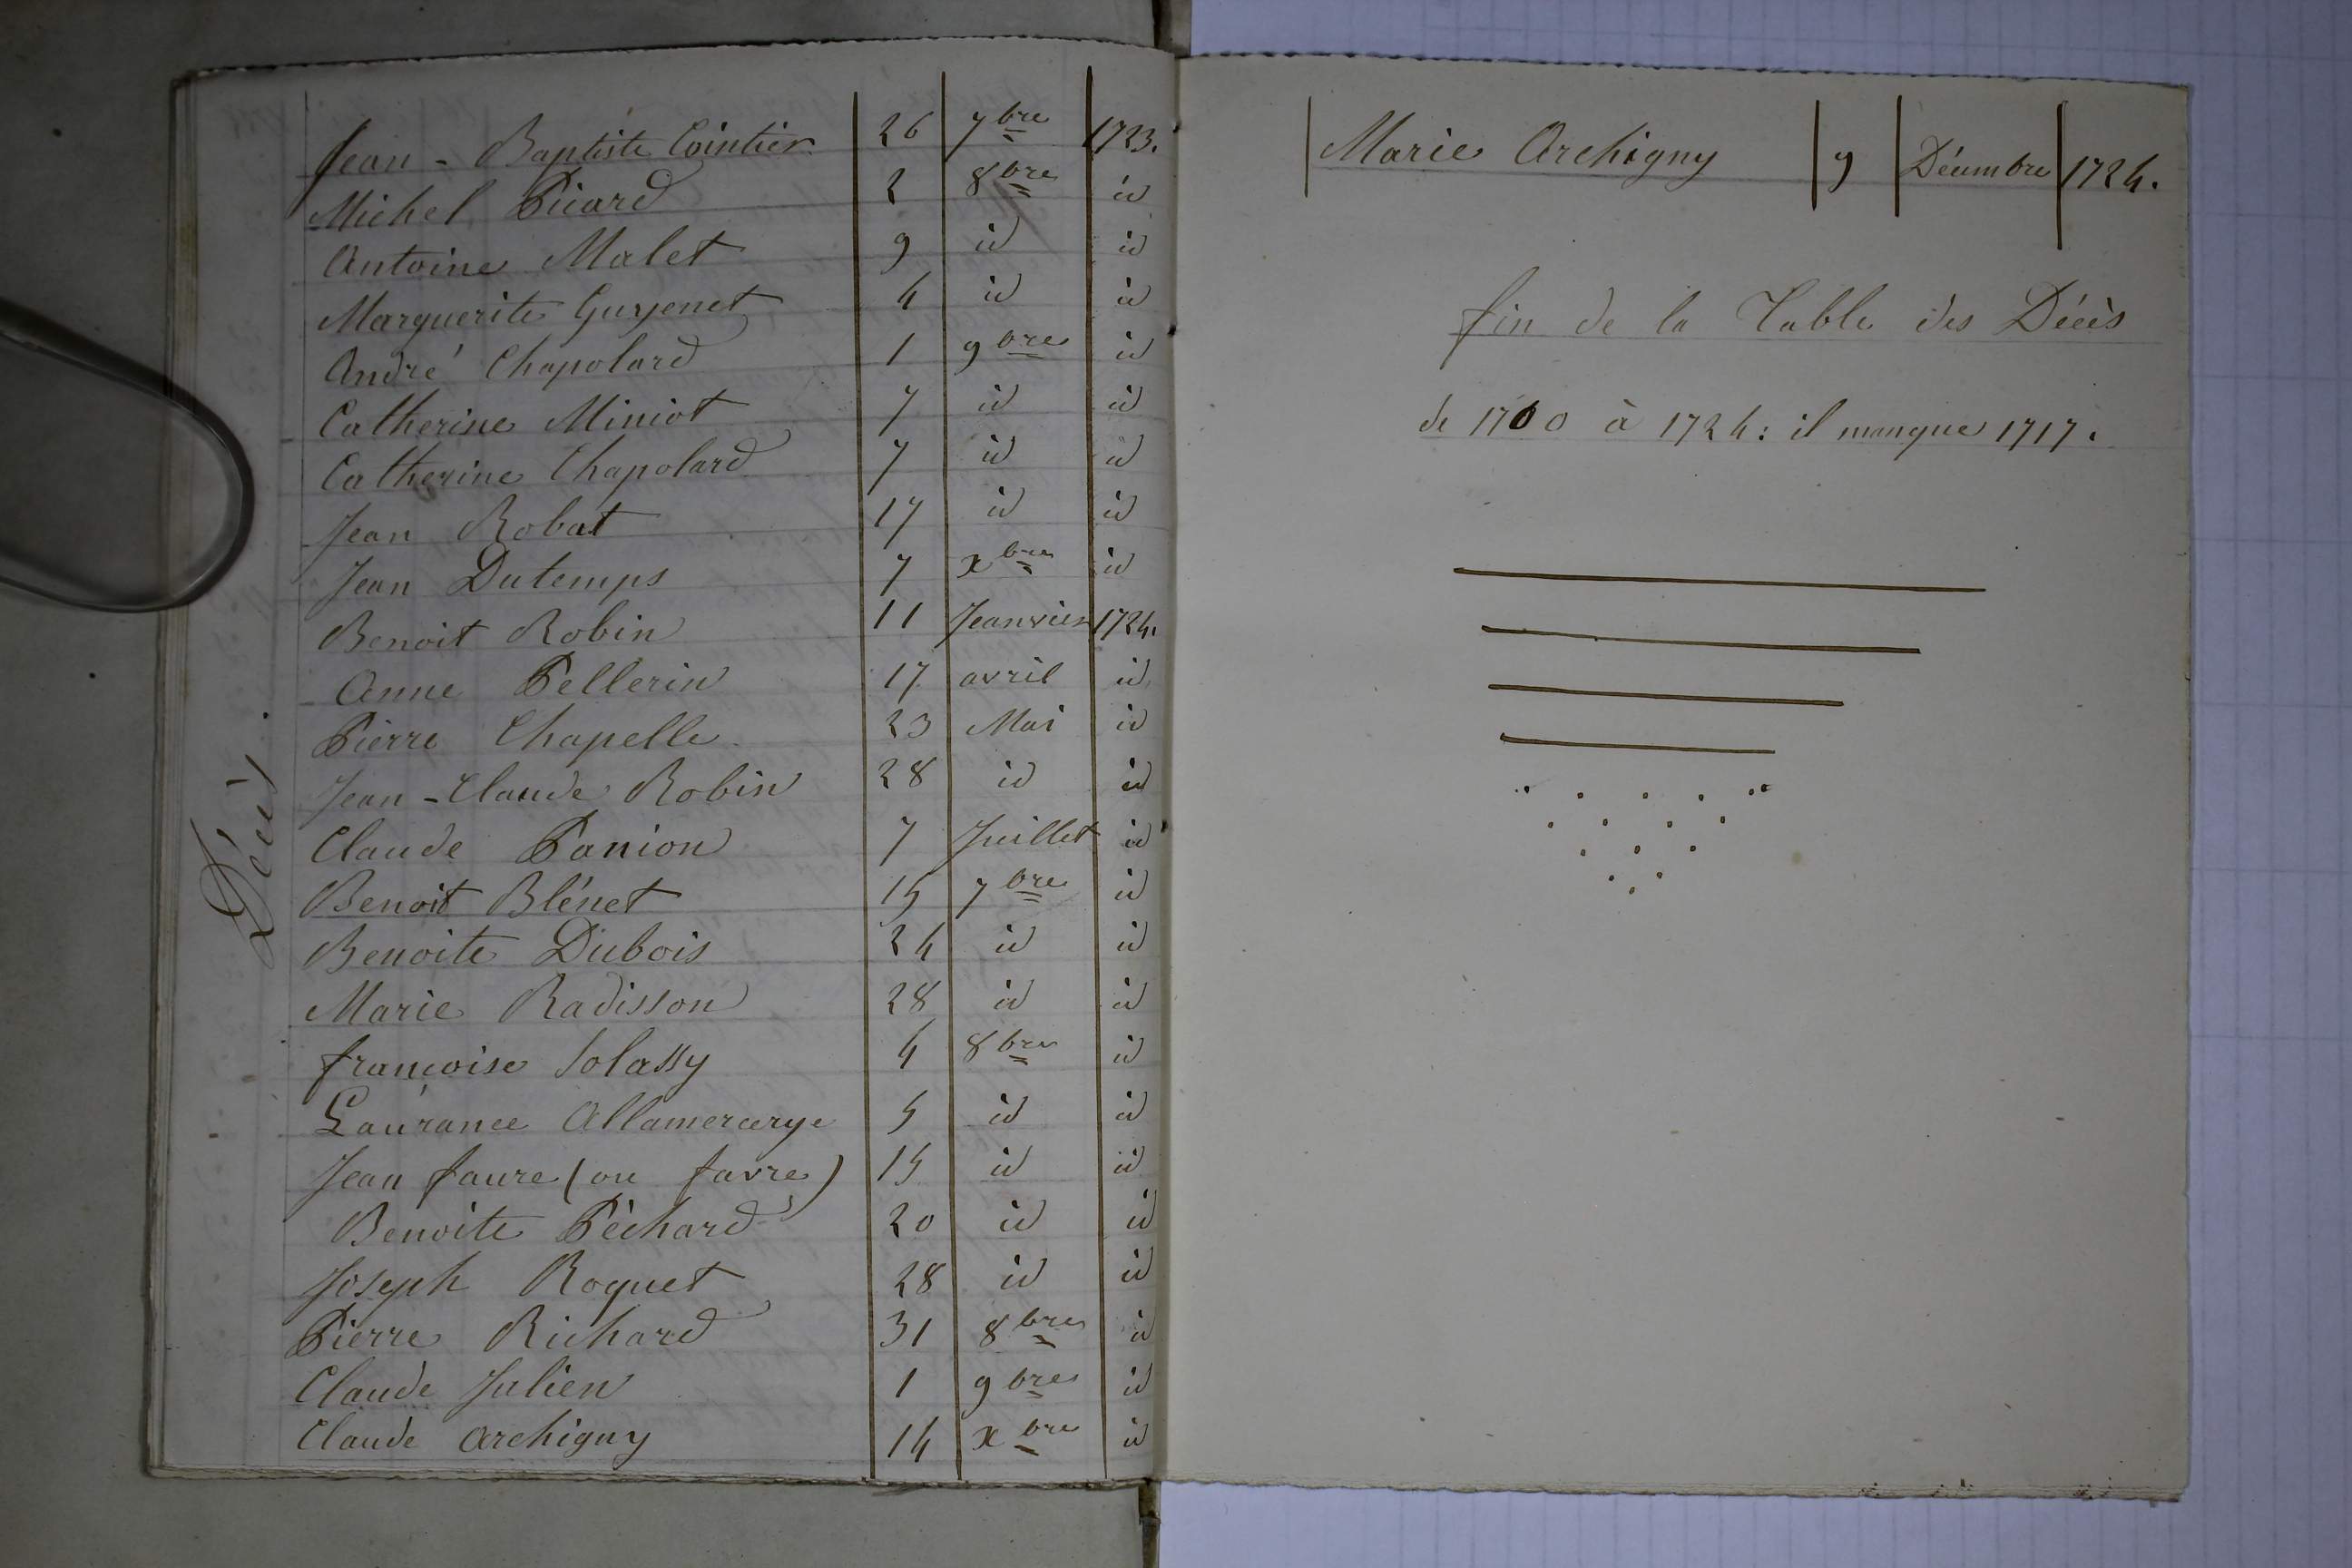 Décès
Jean - Baptiste Cointier 26 7bre 1723.
Michel Picard 2 8bre id
Antoine Malet 9 id id
Marguerite Guyenet 4 id id
André Chapolard 1 9bre id
Catherine Miniot 7 id id
Catherine Chapolard 7 id id
Jean Robat 17 id id
Jean Dutemps 7 xbre id
Benoit Robin 11 Jeanvier 1724.
Anne Pellerin 17 avril id
Pierre Chapelle 23 Mai id
Jean - Claude Robin 28 id id
Claude Panion 7 Juillet id
Benoit Blénet 15 7bre id
Benoite Dubois 24 id id
Marie Radisson 28 id id
françoise Solassy 4 8bre id
Laurance Allamercerye 5 id id
Jean faure (ou favre) 15 id id
Benoite Péchard 20 id id
Joseph Roquet 28 id id
Pierre Richard 31 8bre id
Claude Julien 1 9bre id
Claude Archigny 14 xbre id
Marie Archigny 9 Décembre 1724.
fin de la Table des Décès
de 1700 à 1724 : il manque 1717.